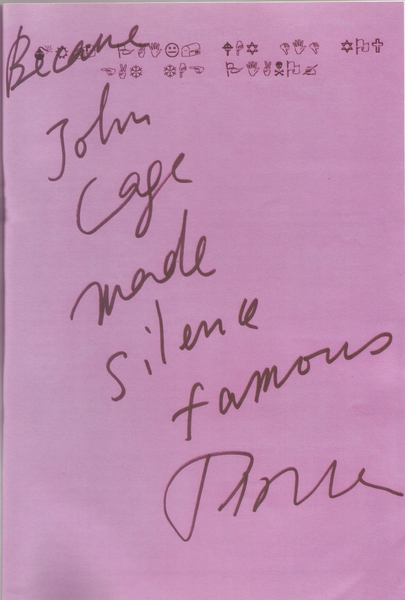 Because
John
Cage
made
silence
famous